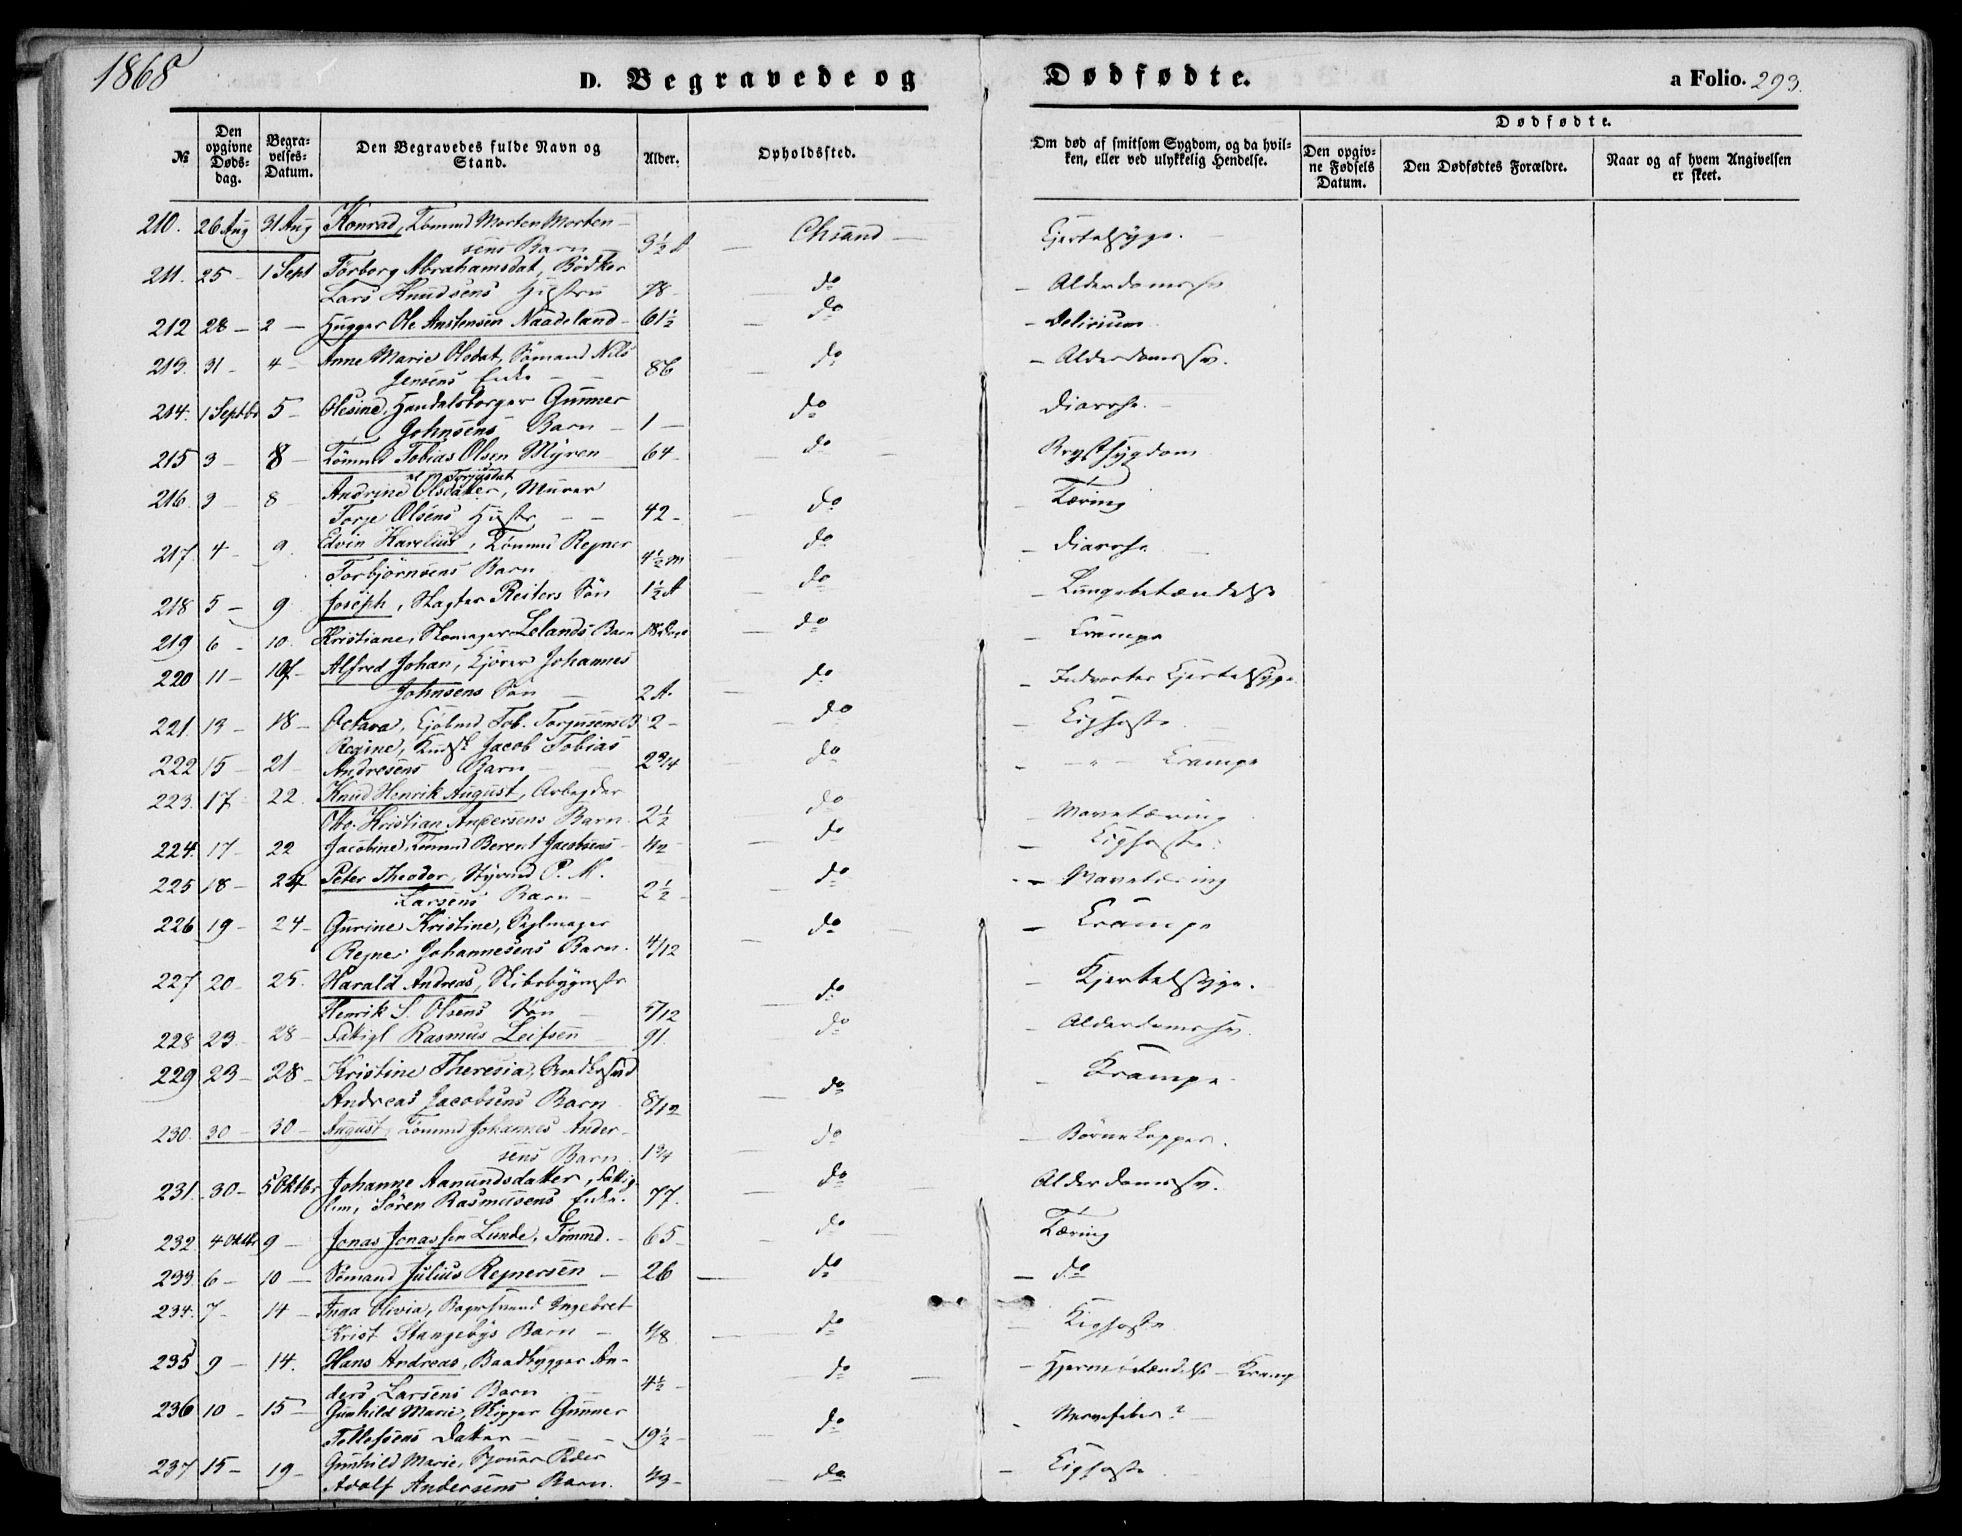 1868
D. Begravede og Dødfødte.
a Folio. 293.
№
Den opgivne Døds-dag.
Begra-velses-Datum.
Den Begravedes fulde Navn og Stand.
Alder.
Opholdssted.
Om død af smitsom Sygdom, og da hvil-ken, eller ved ulykkelig Hendelse.
Dødfødte.
Den opgiv-ne Fødsels Datum.
Den Dødfødtes Forældre.
Naar og af hvem Angivelsen er skeet.
210. 26 Aug 31 Aug Konrad, Tømmd Morten Morten-
sens Barn 3½ A — Chsand — Kjertelsyge.
211. 25 – 1 Sept Torborg Abrahamsdat, Bödker
Lars Knudsens Hustru 78 – do – Alderdomssv
212 28 – 2 — Hugger Ole Anstensen Naadeland – 61½ – do – Delirium
213. 31 – 4 – Anne Marie Olsdat, Sömand Nils
Jensens Enke – – 86 do – Alderdomssv.
214. 1 Septbr 5 – Olesine, Handelsborger Gunner
Johnsens Barn – 1 — do Diarrhe. –
215 3 – 8 – Tömmd Tobias Olsen Myren 64 – do Brystsygdom
216 3 – 8 – Andrine Olsdatter, Murer
al Torjusdat
Torje Olsens Hustr – – 42 – do – Tæring
217 4 – 9. Edvin Karelius, Tömmd Rejner
Torbjörnsens Barn 4½ m do – Diarrhe
218 5 – 9 Joseph, Slagter Reiters Sön 1½ A do – Lungebetændelse
219 6 – 10. Kristiane, Skomager Lelands Barn 18 Dage – do – Krampe
220 11 – 17 – Alfred Johan, Kjörer Johannes
Johnsens Sön – 2 A. – do – Indvortes Kjertelsyge.
221 13 – 18 – Octava, Tob. Torjusens B 2 – do – Kighoste
222 15 – 21 – Regine, Jacob Tobias
Andresens Barn – – 2¾ do – – " – Krampe
223. 17 – 22. Knud Henrik August, Arbejder
Otto Kristian Andersens Barn. 2½ do – Mavetæring
224. 17 – 22 Jacobine, Tömmd Berent Jacobsens – ½ – do – Kighoste.
225 18 – 24 Peter Theodor, Styrmd P. M.
Larsens Barn – 2½ – do – Mavetæring
226 19 – 24 – Gurine Kristine, Sejlmager
Rejner Johannesens Barn. 4/12 – do – Krampe
227 20 – 25. Harald Andreas, Skibsbygmstr
Henrik S. Olsens Sön – 5/12 – do – Kjertelsyge.
228 23 – 28 – Fattigl Rasmus Leifsen – 91. do – Alderdomssv.
229 23 – 28 – Kristine Theresia,
Andreas Jacobsens Barn 8/12 – do – Krampe
230. 30 – 30 – August, Tömmd Johannes Ander-
sens Barn. 1¾ do – Börnekopper.
231. 30 – 5 Oktbr Johanne Aanundsdatter, Fattig-
lem, Sören Rasmusens Enke. 77. – do Alderdomssv.
232. 4 Oktbr 9 – Jonas Jonassen Lunde, Tömmd. – 65 – do Tæring
233. 6 – 10 — Sömand Julius Rejnersen – 26 — do – do
234. 7 – 14 – Inga Olivia, Bagersvend Ingebret
Krist Stangebys Barn – ⅛ – do – Kighoste
235 9 – 14. Hans Andreas, Baadbygger An-
ders Larsens Barn 4½ – do – Hjernebetændelse – Kramp
236 10 – 15 – Gunhild Marie, Skipper Gunner
Tellefsens Datter – – 19½ – do – Nervefeber?
237 15 – 19 – Gunhild Marie, Peder
Adolf Andersens Barn. – do – Kighoste